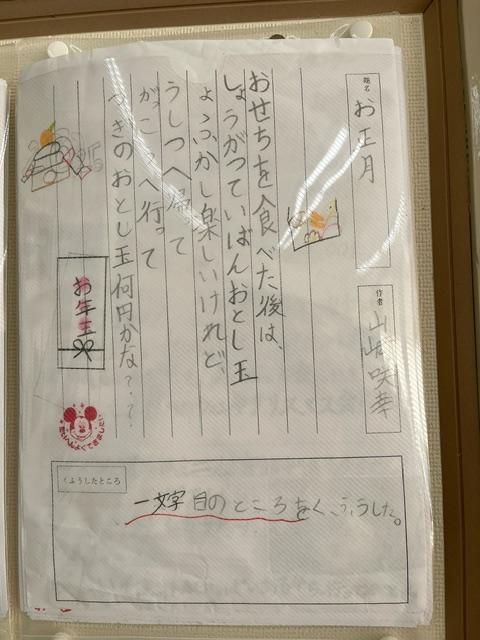 題名
お正月
作者
山咲幸
おせちを食べた後は、
しょうがつていばんおとし玉
よふかし楽しいけれど、
うしつへ帰って
がっこうへ行って
つぎのおとし玉何円かな？・？・
お年玉
たいへんよくできました!
くふうしたところ
一文字目のところをくふうした。